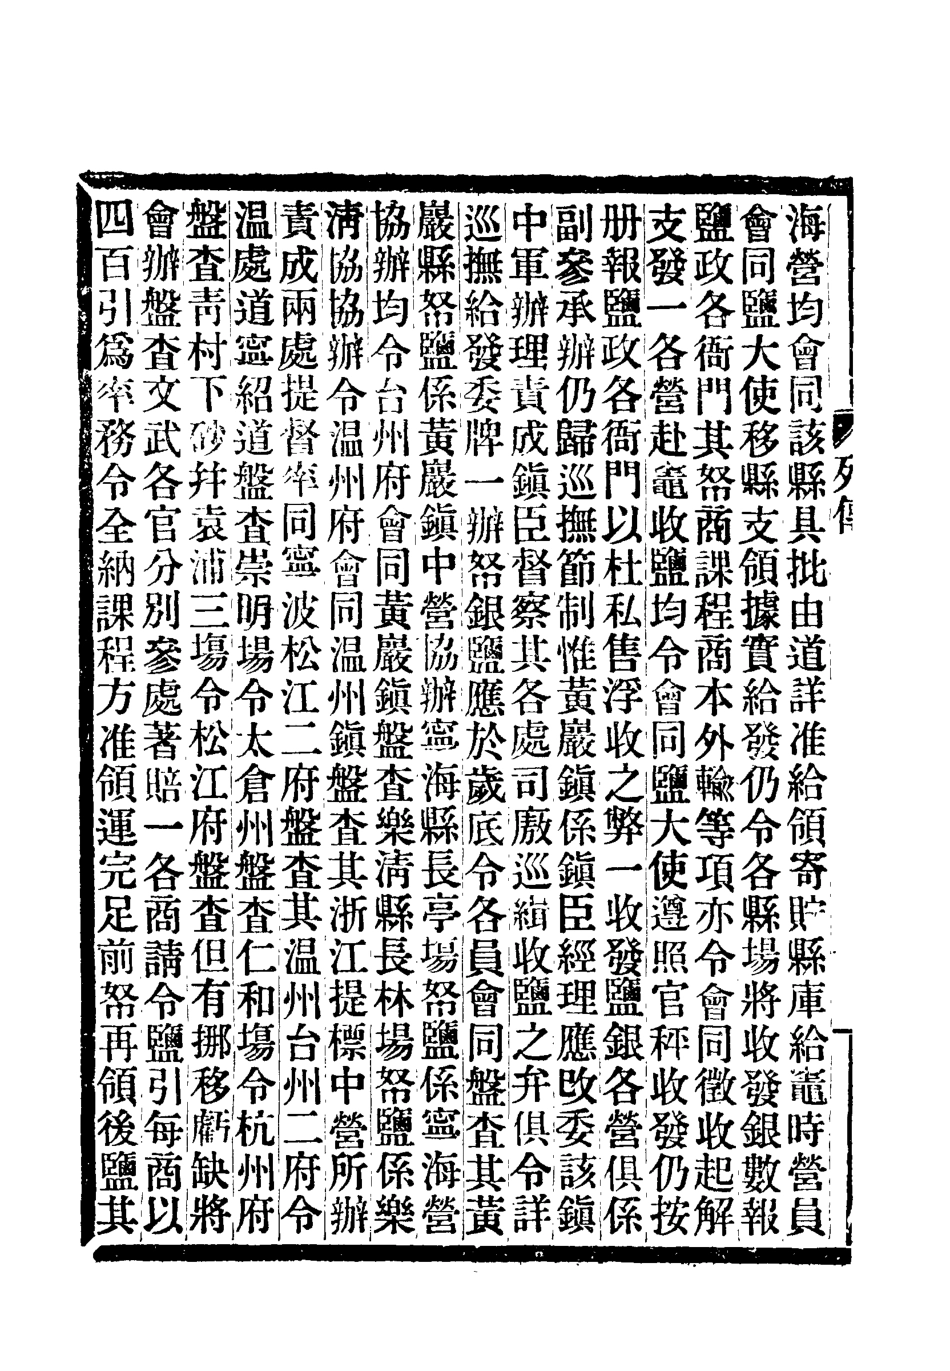 海營均會同該縣具批由道詳准給領寄貯縣庫給竈時營員
會同鹽大使移縣支領據實給發仍令各縣場將收發銀數報
鹽政各衙門其帑商課程商本外輸等項亦令會同徵收起解
支發一各營赴竈收鹽均令會同鹽大使遵照官秤收發仍按
册報鹽政各衙門以杜私售浮收之弊一收發鹽銀各營俱係
副參承辦仍歸巡撫節制惟黃巖鎭係鎭臣經理應改委該鎭
中軍辦理責成鎭臣督察其各處司廒巡緝收鹽之弁俱令詳
巡撫給發委牌一辦帑銀鹽應於歲底令各員會同盤查其黃
巖縣帑鹽係黃巖鎭中營協辦寧海縣長亭場帑鹽係寧海營
協辦均令台州府會同黃巖鎭盤查樂淸縣長林場帑鹽係樂
淸協協辦令温州府會同温州鎭盤查其浙江提標中營所辦
責成兩處提督率同寧波松江二府盤查其温州台州二府令
温處道寧紹道盤查崇明場令太倉州盤查仁和場令杭州府
盤查靑村下砂幷袁浦三場令松江府盤查但有挪移虧缺將
會辦盤查文武各官分別參處著賠一各商請令鹽引每商以
四百引爲率務令全納課程方准領運完足前帑再領後鹽其
列傳